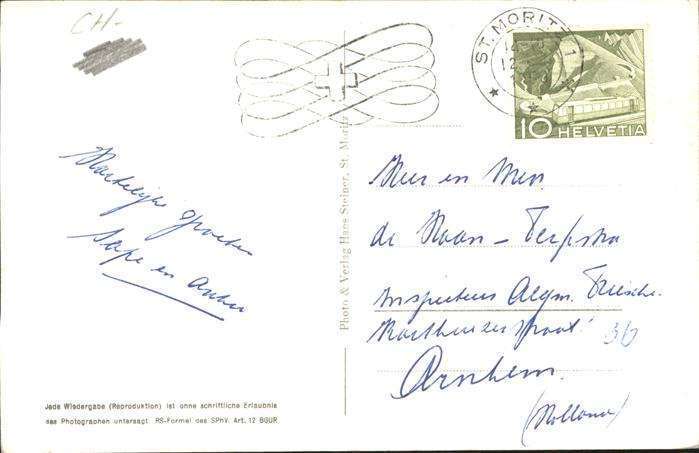 CH-
ST. MORITZ 1
12
10 HELVETIA
Hartelijke groeten
en
Photo & Verlag Hans Steiner, St. Moritz
Heer en Mevr.
de Haan - Terpstra
Inspecteur Algm.
Arnhem.
(Holland)
Jede Wiedergabe (Reproduktion) ist ohne schriftliche Erlaubnis
des Photographen untersagt. RS-Formel des SPhV. Art. 12 BGUR